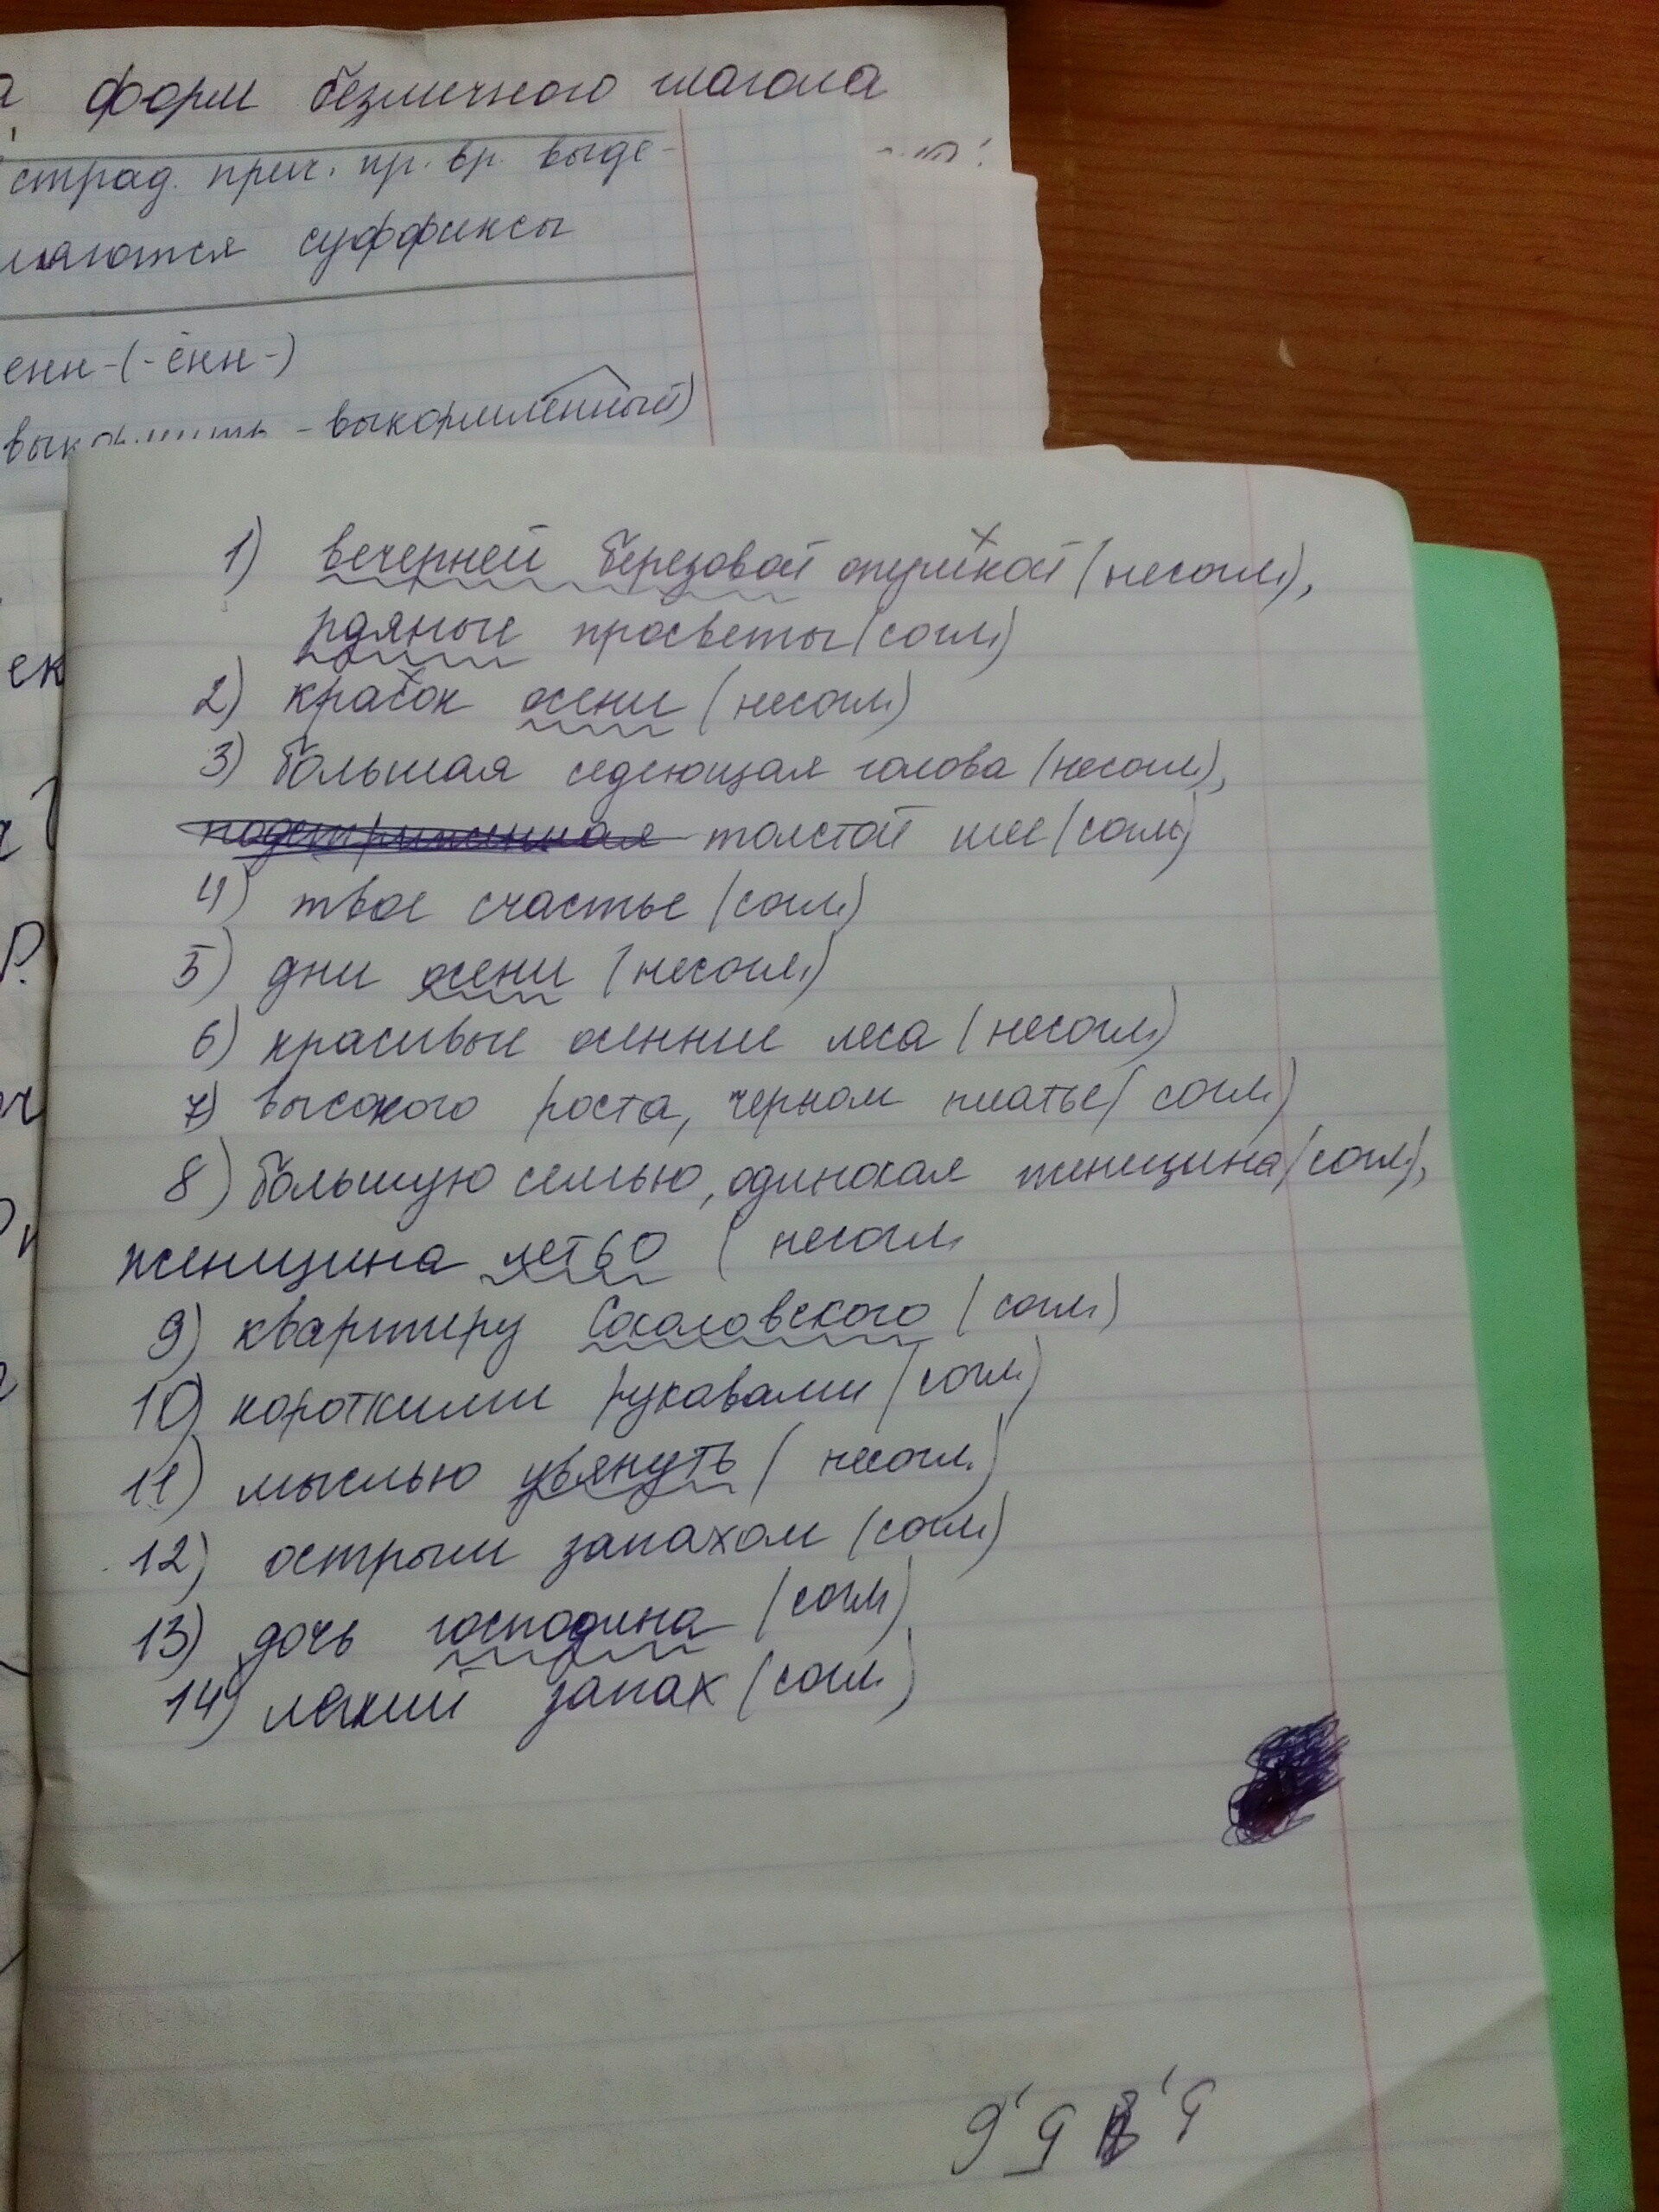 форм безличного глагола
страд. прич. пр. вр. выде-
ляются суффиксы
енн-(-ённ-)
- выкормленный)
ек
1) вечерней березовой опушкой (несогл.),
рдяные просветы (согл.)
2) красок осени (несогл.)
3) большая седеющая голова (несогл.),
толстой шее (согл.)
4) твое счастье (согл.)
5) дни осени (несогл.)
6) красивые осенние леса (несогл.)
7) высокого роста, черном платье (согл.)
8) большую семью, одинокая женщина (согл.),
женщина лет 60 (несогл.
9) квартиру Соколовского (согл.)
10) короткими рукавами (согл.)
11) мыслью увянуть (несогл.)
12) острым запахом (согл.)
13) дочь господина (согл)
14) легкий запах (согл.)